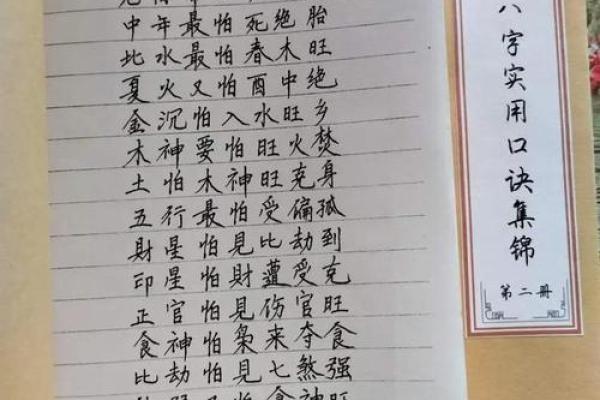 中年最怕死绝胎
比水最怕春木旺
夏火又怕酉中绝
金沉怕入水旺乡
木神要怕旺火焚
土怕木神旺克身
五行最怕受偏孤
財星怕見比劫到
印星怕財遭受克
正官怕見伤官旺
食神怕枭来夺食
比劫怕見七煞强
怕食神旺
八字实用口诀集锦
第二册